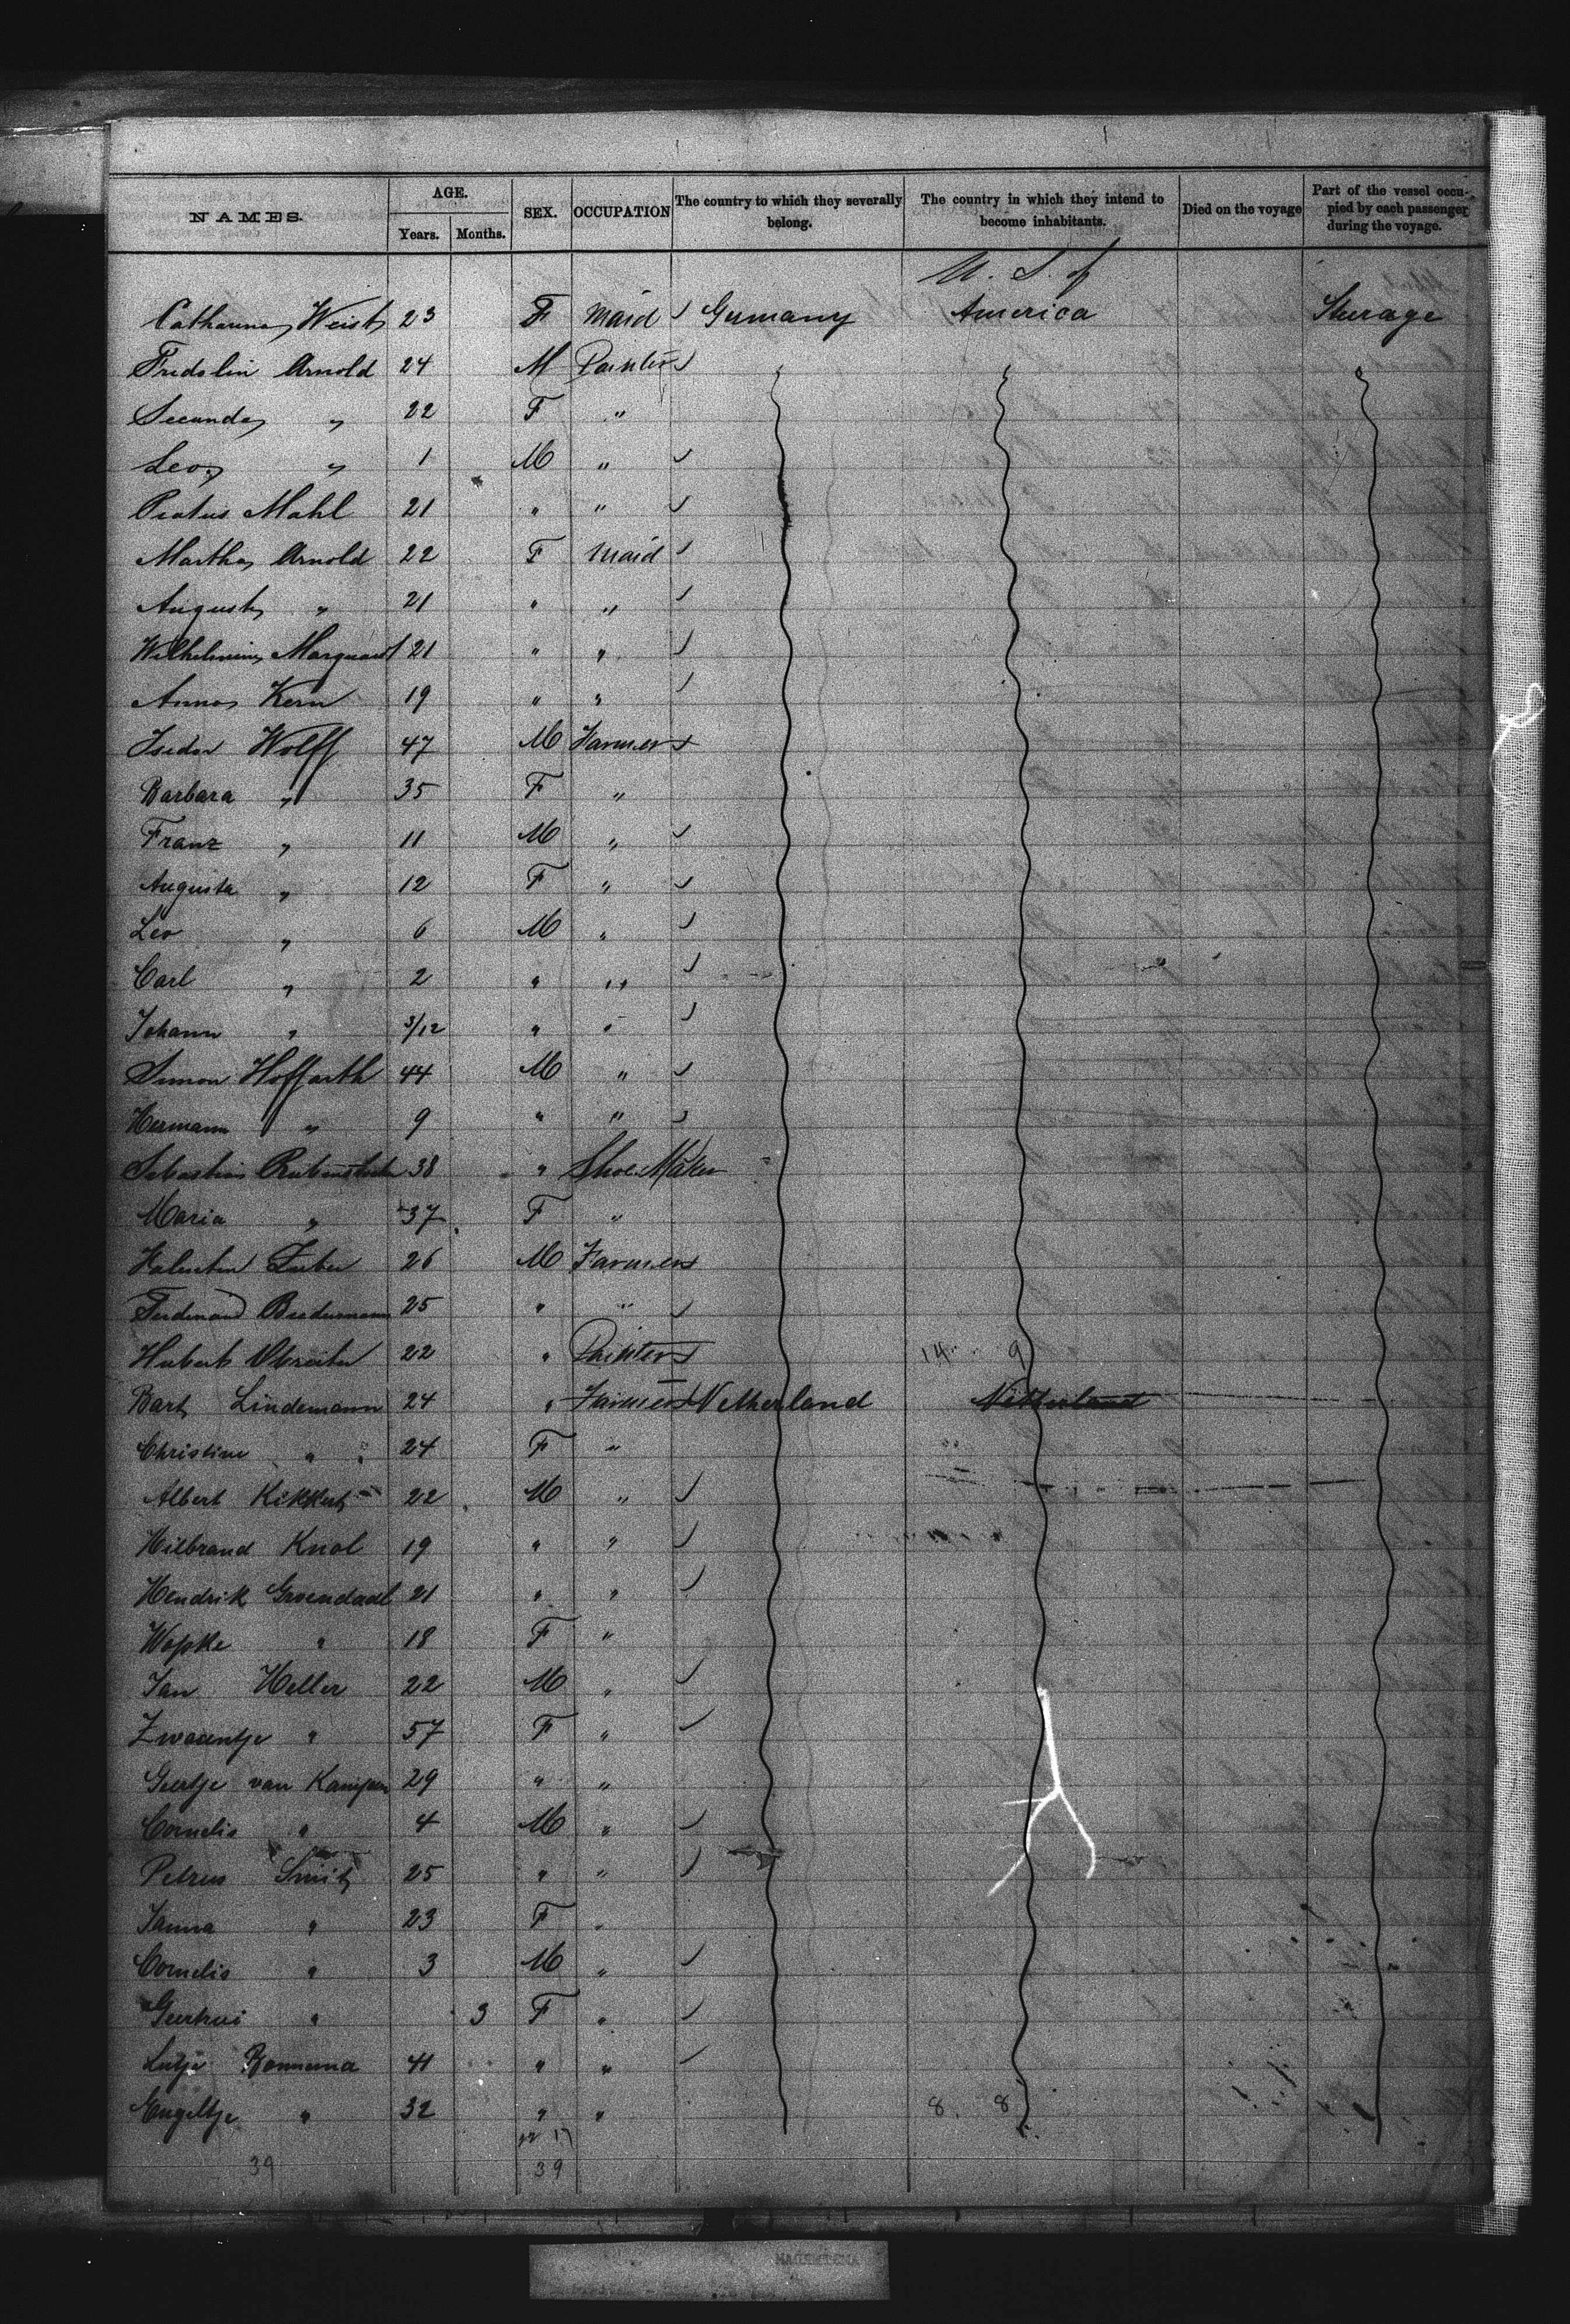 NAMES. AGE. Years. Months. SEX. OCCUPATION The country to which they severally belong. The country in which they intend to become inhabitants. Died on the voyage Part of the vessel occupied by each passenger during the voyage.
U. S. of
Catharina Weist 23 F Maid Germany America Sterage
Fridolin Arnold 24 M Painter
Secunda " 22 F "
Leo " 1 M "
Pratus Mahl 21 " "
Martha Arnold 22 F Maid
August " 21 " "
Wilhelmina Marquart 21 " "
Anna Kern 19 " "
Isidor Wolff 47 M Farmer
Barbara " 35 F "
Franz " 11 M "
Augusta " 12 F "
Leo " 6 M "
Carl " 2 " "
Johann " 3/12 " "
Simon Hoffarth 44 M "
Hermann " 9 " "
Sebastian 38 " Shoe Maker
Maria " 37 F "
Valentin 26 M Farmer
Ferdinand Biedermann 25 " "
Hubert 22 " Painter 14 9
Bart Lindemann 24 " Farmer Netherland Netherland
Christine " 24 F "
Albert Kikkert 22 M "
Hilbrand Knol 19 " "
Hendrik Groendaal 21 " "
Wopke " 18 F "
Jan Heller 22 M "
Zwaantje " 57 F "
Geertje van Kampen 29 " "
Cornelis " 4 M "
Petrus Smit 25 " "
Janna " 23 F "
Cornelis " 3 M "
" 3 F "
Lutje Bonnema 41 " "
Engeltje " 32 " " 8. 8
22 17
39 39